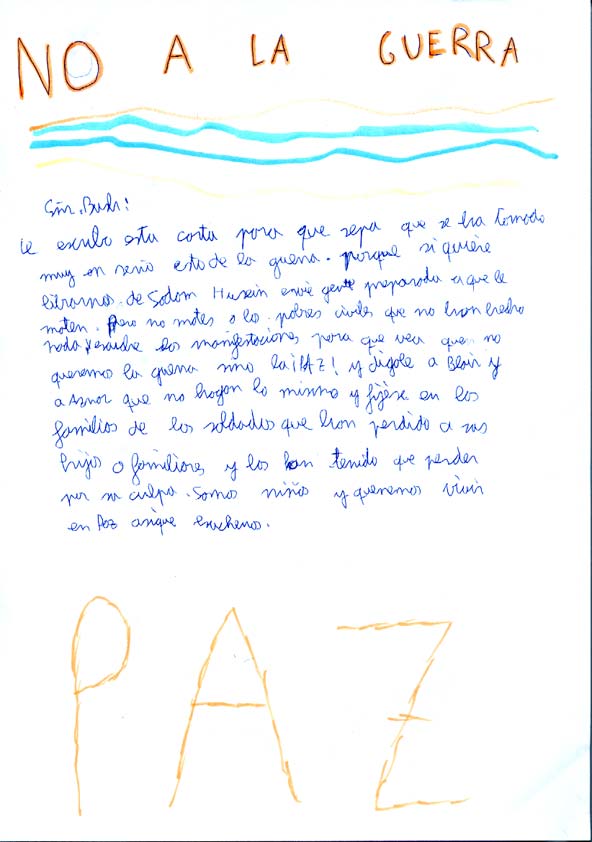 NO A LA GUERRA
Sñr. Bush:
Le escribo esta carta para que sepa que se ha tomado
muy en serio esto de la guerra. porque si quiere
librarnos de Sadam Husein envie gente preparada a que le
maten. Pero no mates a los pobres civiles que no han hecho
nada y escuche las manifestaciones para que vea que no
queremos la guerra sino la ¡PAZ! y digale a Blair y
a Aznar que no hagan lo mismo y fijese en las
familias de los soldados que han perdido a sus
hijos o familiares y los han tenido que perder
por su culpa. Somos niños y queremos vivir
en Paz asique escuchenos.
PAZ